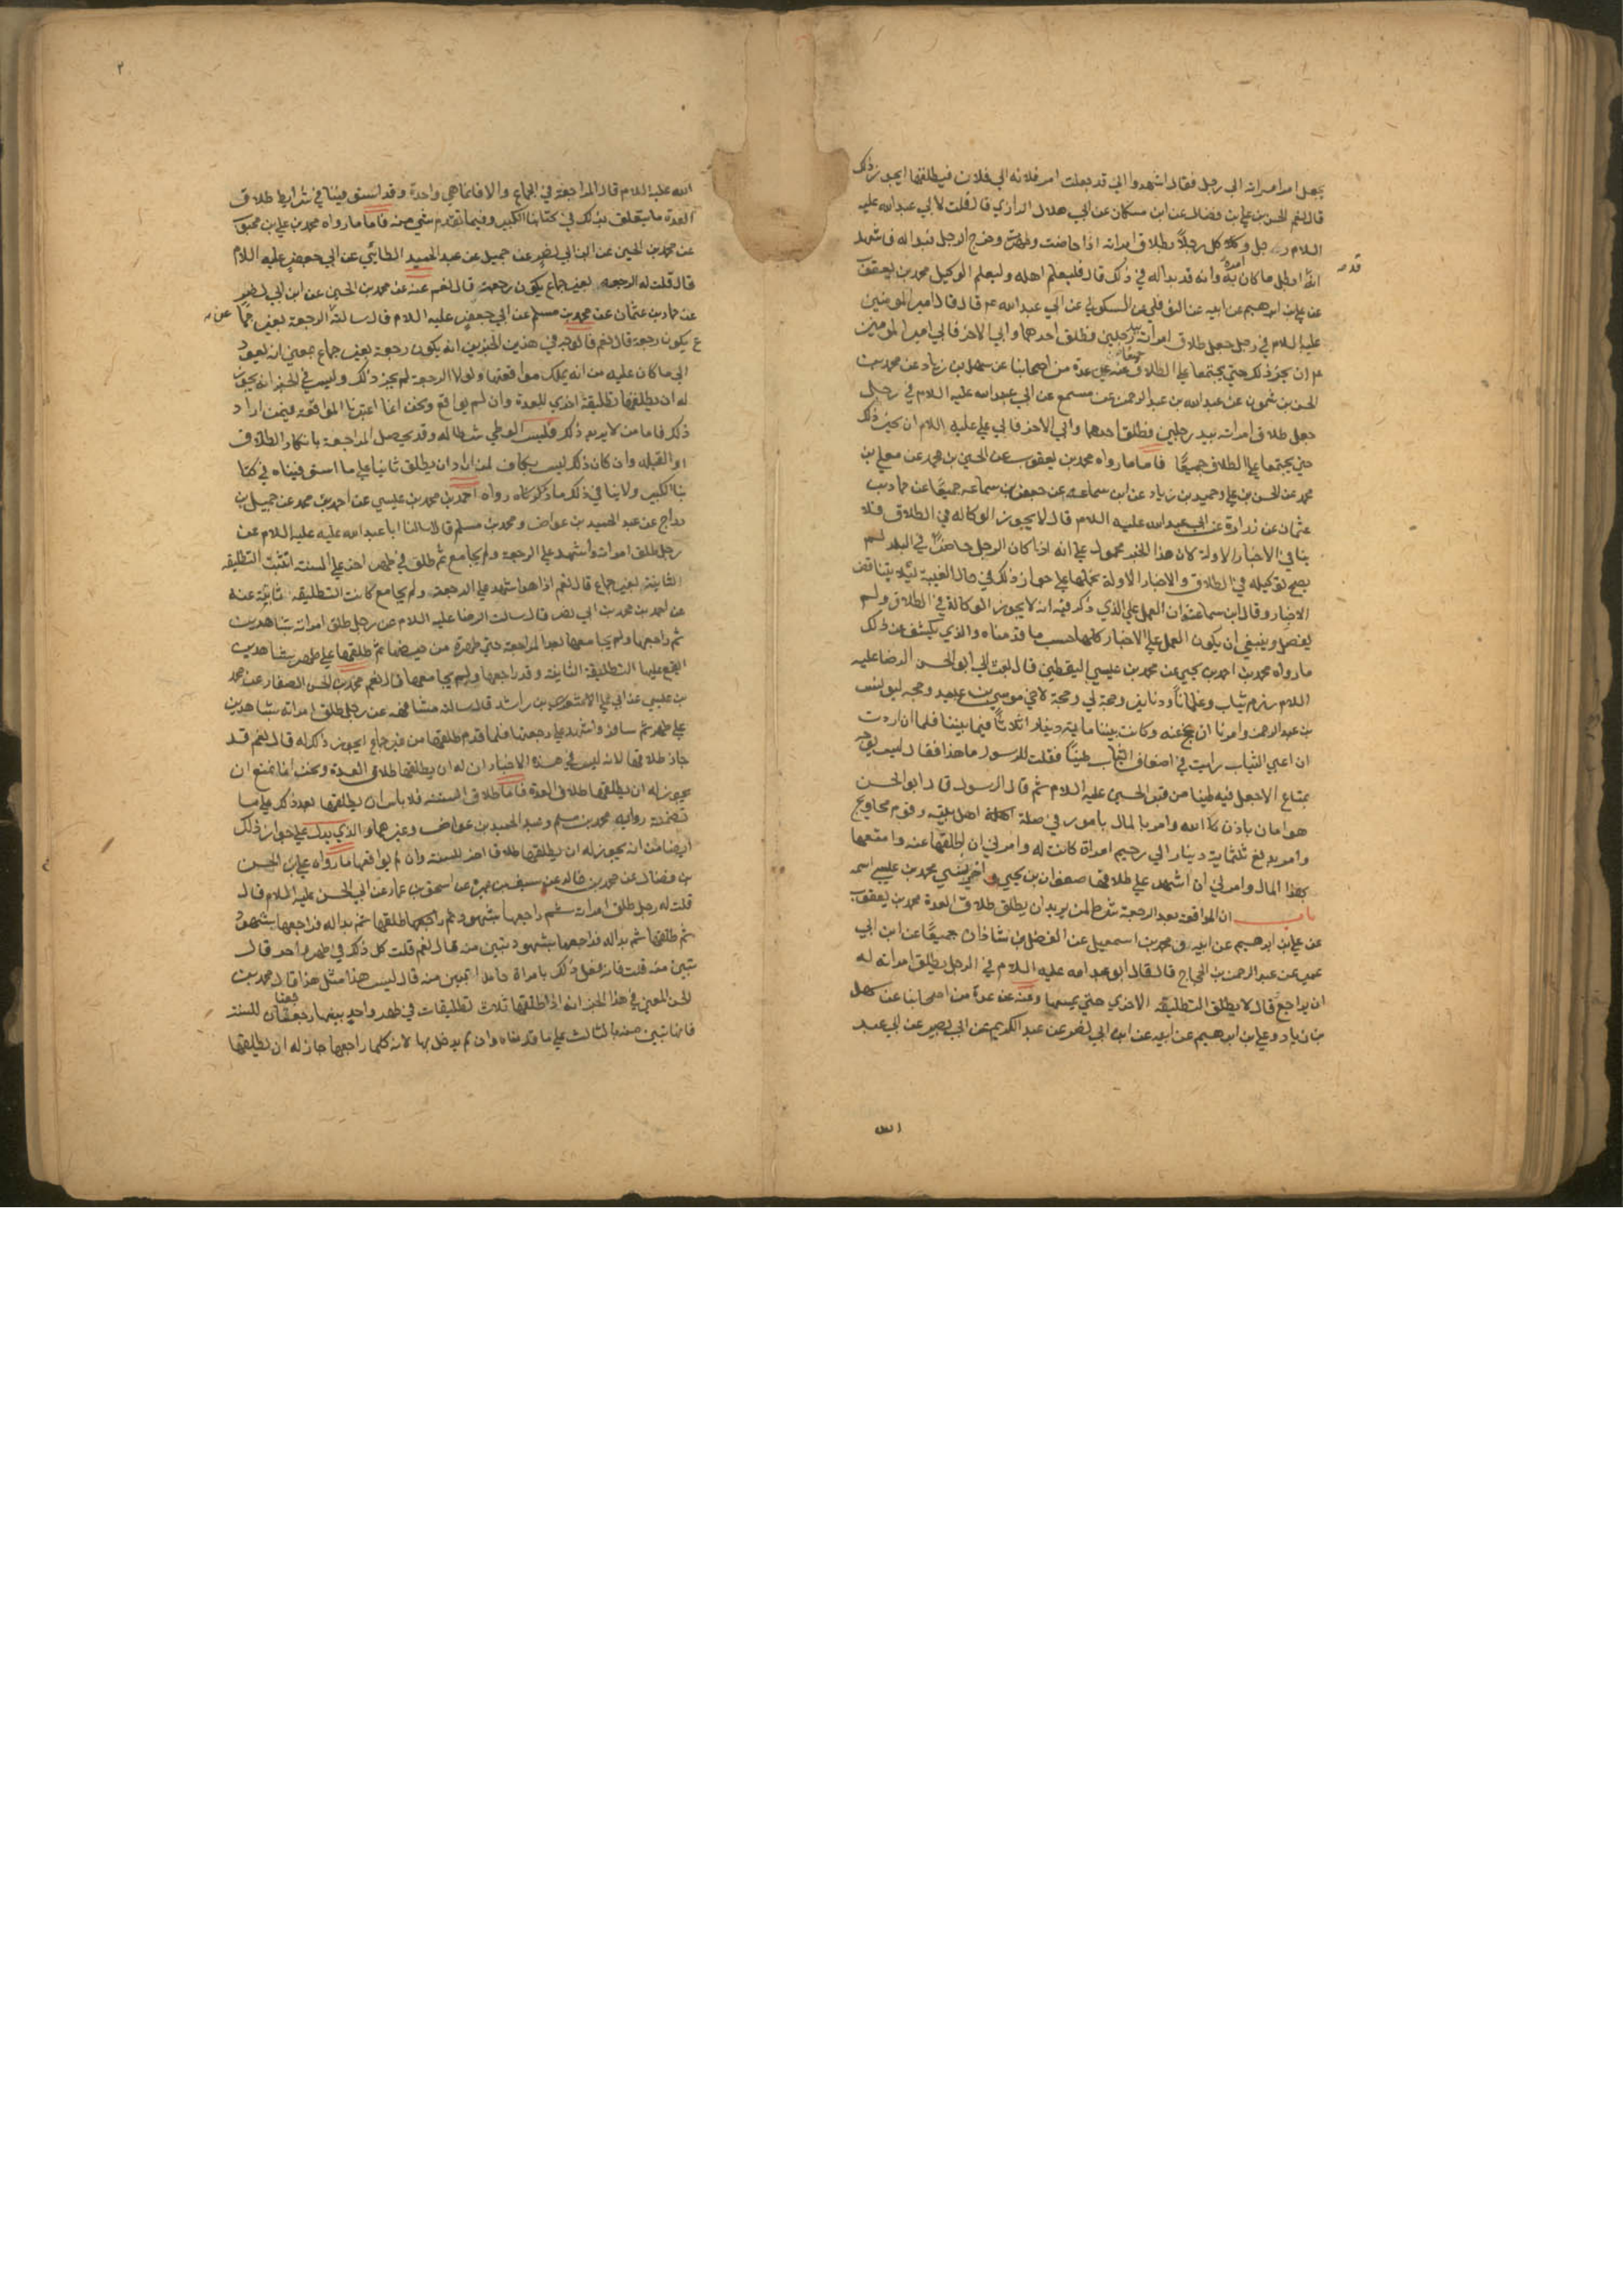 يجعل امر امراته الى رجل فقال اشهدوا اني قد جعلت امر فلانه الى فلان فيطلقها ايجوز ذلك
قال نعم الحسن بن علي بن فضال عن ابن مسكان عن ابي هلال الرازي قال قلت لابي عبد الله عليه
السلام رجل وكل رجلا بطلاق امراته اذا حاضت وطهرت وخرج الرجل فبدا له فاشهد
انه ابطل ما كان امره به وانه قد بدا له في ذلك قال فليعلم اهله وليعلم الوكيل محمد بن يعقوب
عن علي بن ابرهيم عن ابيه عن النوفلي عن السكوني عن ابي عبد الله عم قال قال امير المومنين
عليه السلام في رجل جعل طلاق امراته بيد رجلين فطلق احدهما وابي الاخر فابي امير المومنين
عم ان يجيز ذلك حتي يجتمعا علي الطلاق جميعا عنه عن عدة من اصحابنا عن سهل بن زياد عن محمد بن
الحسن بن شمون عن عبد الله بن عبد الرحمن عن مسمع عن ابي عبد الله عليه السلام في رجل
جعل طلاق امراته بيد رجلين فطلق احدهما وابي الاخر فابي علي عليه السلام ان يجيز ذلك
حتي يجتمعا علي الطلاق جميعًا فاما ما رواه محمد بن يعقوب عن الحسين بن محمد عن معلي بن
محمد عن الحسن بن علي وحميد بن زياد عن ابن سماعه عن جعفر بن سماعه جميعًا عن حماد بن
عثمان عن زرارة عن ابي عبد الله عليه السلام قال لا يجوز الوكاله في الطلاق فلا
ينافي الاخبار الاولة لان هذا الخبر محمول علي انه اذا كان الرجل حاضرًا في البلد لم
يصح توكيله في الطلاق والاخبار الاولة نحملها علي جواز ذلك في حال الغيبة لئلا يتناقض
الاخبار وقال ابن سماعة وان العمل علي الذي ذكر فيه انه لا يجوز الوكالة في الطلاق ولم
يفصل وينبغي ان يكون العمل علي الاخبار كلها حسب ما قدمناه والذي يكشف عن ذلك
ما رواه محمد بن احمد بن يحيي عن محمد بن عيسي اليقطيني قال بعث الي ابو الحسن الرضا عليه
السلام رزم ثياب وغلمانًا ودنانير وحجة لي وحجة لاخي موسي بن عبيد وحجه ليونس
بن عبد الرحمن وامرنا ان نحج عنه وكانت بيننا ماية دينار اثلاثًا فيما بيننا فلما ان اردت
ان اعبي الثياب رايت في اضعاف الثياب طينًا فقلت للرسول ما هذا فقال ليس يوجه
بمتاع الا جعل فيه طينا من قبر الحسين عليه السلام ثم قال الرسول قال ابو الحسن
هو امان باذن الله وامر بالمال بامور في صلة اهل بيته وقوم محاويج
وامر بدفع ثلثماية دينار الي رحيم امراة كانت له وامرني ان اطلقها عنه وامتعها
بهذا المال وامرني ان اشهد علي طلاقها صفوان بن يحيي واخر نسي محمد بن عيسي اسمه
باب ان المواقعة بعد الرجعة شرط لمن يريد ان يطلق طلاق العدة محمد بن يعقوب
عن علي بن ابرهيم عن ابيه ومحمد بن اسمعيل عن الفضل بن شاذان جميعًا عن ابن ابي
عمير عن عبد الرحمن بن الحجاج قال قال ابو عبد الله عليه السلام في الرجل يطلق امراته له
ان يراجع قال لا يطلق التطليقه الاخري حتي يمسها وعنه عن عدة من اصحابنا عن سهل
بن زياد وعلي بن ابرهيم عن ابيه عن ابن ابي نصر عن عبد الكريم عن ابي بصير عن ابي عبد
٢
الله عليه السلام قال المراجعة في الجماع والا فانما هي واحدة وقد استوفينا في شرايط طلاق
العدة ما يتعلق بذلك في كتابنا الكبير وفيما تقدم شي منه فاما ما رواه محمد بن علي بن محبوب
عن محمد بن الحسين عن ابن ابي نصر عن جميل عن عبد الحميد الطائي عن ابي جعفر عليه السلام
قال قلت له الرجعه بغير جماع يكون رجعة قال نعم عنه عن محمد بن الحسين عن ابن ابي نصر
عن حماد بن عثمان عن محمد بن مسلم عن ابي جعفر عليه السلام قال سالته عن الرجعة بغير جما
ع يكون رجعة قال نعم فالوجه في هذين الخبرين انه يكون رجعة بغير جماع بمعني انه يعود
الي ما كان عليه من انه يملك مواقعتها ولولا الرجعة لم يجز ذلك وليس في الخبر انه يجوز
له ان يطلقها تطليقة اخري للعدة وان لم يواقع ونحن انما اعتبرنا المواقعه فيمن اراد
ذلك فاما من لا يريد ذلك فليس الوطي شرطا له وقد يحصل المراجعة بانكار الطلاق
او القبله وان كان ذلك ليس بكاف لمن اراد ان يطلق ثانيا علي ما استوفيناه في كتا
بنا الكبير ولا ينافي ذلك ما ذكرناه رواه احمد بن محمد بن عيسي عن احمد بن محمد عن جميل بن
دراج عن عبد الحميد بن عواض ومحمد بن مسلم قالا سالنا ابا عبد الله عليه السلام عن
رجل طلق امراته واشهد علي الرجعة ولم يجامع ثم طلق في طهر اخر علي السنة اتثبت التطليقه
الثانية بغير جماع قال نعم اذا هو اشهد علي الرجعة ولم يجامع كانت التطليقة ثابتة عنه
عن احمد بن محمد بن ابي نصر قال سالت الرضا عليه السلام عن رجل طلق امراته بشاهدين
ثم راجعها ولم يجامعها بعد المراجعة حتي طهرت من حيضها ثم طلقها علي طهر بشاهدين
ايقع عليها التطليقة الثانية وقد راجعها ولم يجامعها قال نعم محمد بن الحسن الصفار عن محمد
بن عيسي عن ابي علي بن راشد قال سالته مشافهه عن رجل طلق امراته بشاهدين
علي طهر ثم سافر واشهد علي رجعتها فلما قدم طلقها من غير جماع ايجوز ذلك له قال نعم قد
جاز طلاقها لانه ليس في هذه الاخبار ان له ان يطلقها طلاق العدة ونحن انما نمنع ان
يجوز له ان يطلقها طلاق العدة فاما طلاق السنة فلا باس ان يطلقها بعد ذلك علي ما
تضمنته روايه محمد بن مسلم وعبد الحميد بن عواض وغيرهما والذي يدل علي جواز ذلك
ايضا من انه يجوز له ان يطلقها طلاقا اخر للسنة وان لم يواقعها ما رواه علي بن الحسن
بن فضال عن محمد بن خالد عن سيف بن عميرة عن اسحق بن عمار عن ابي الحسن عليه السلام قال
قلت له رجل طلق امراته ثم راجعها بشهود ثم طلقها ثم بدا له فراجعها بشهود
ثم طلقها ثم بدا له فراجعها بشهود تبين منه قال نعم قلت كل ذلك في طهر واحد قال
تبين منه قلت فانه فعل ذلك بامراة حامل اتبين منه قال ليس هذا مثل هذا قال محمد بن
الحسن المعني في هذا الخبر انه اذا طلقها ثلاث تطليقات في طهر واحد بينها رجعتان للسنة
فانها تبين منه بالثالث علي ما قدمناه وان لم يدخل بها لانه كلما راجعها جاز له ان يطلقها